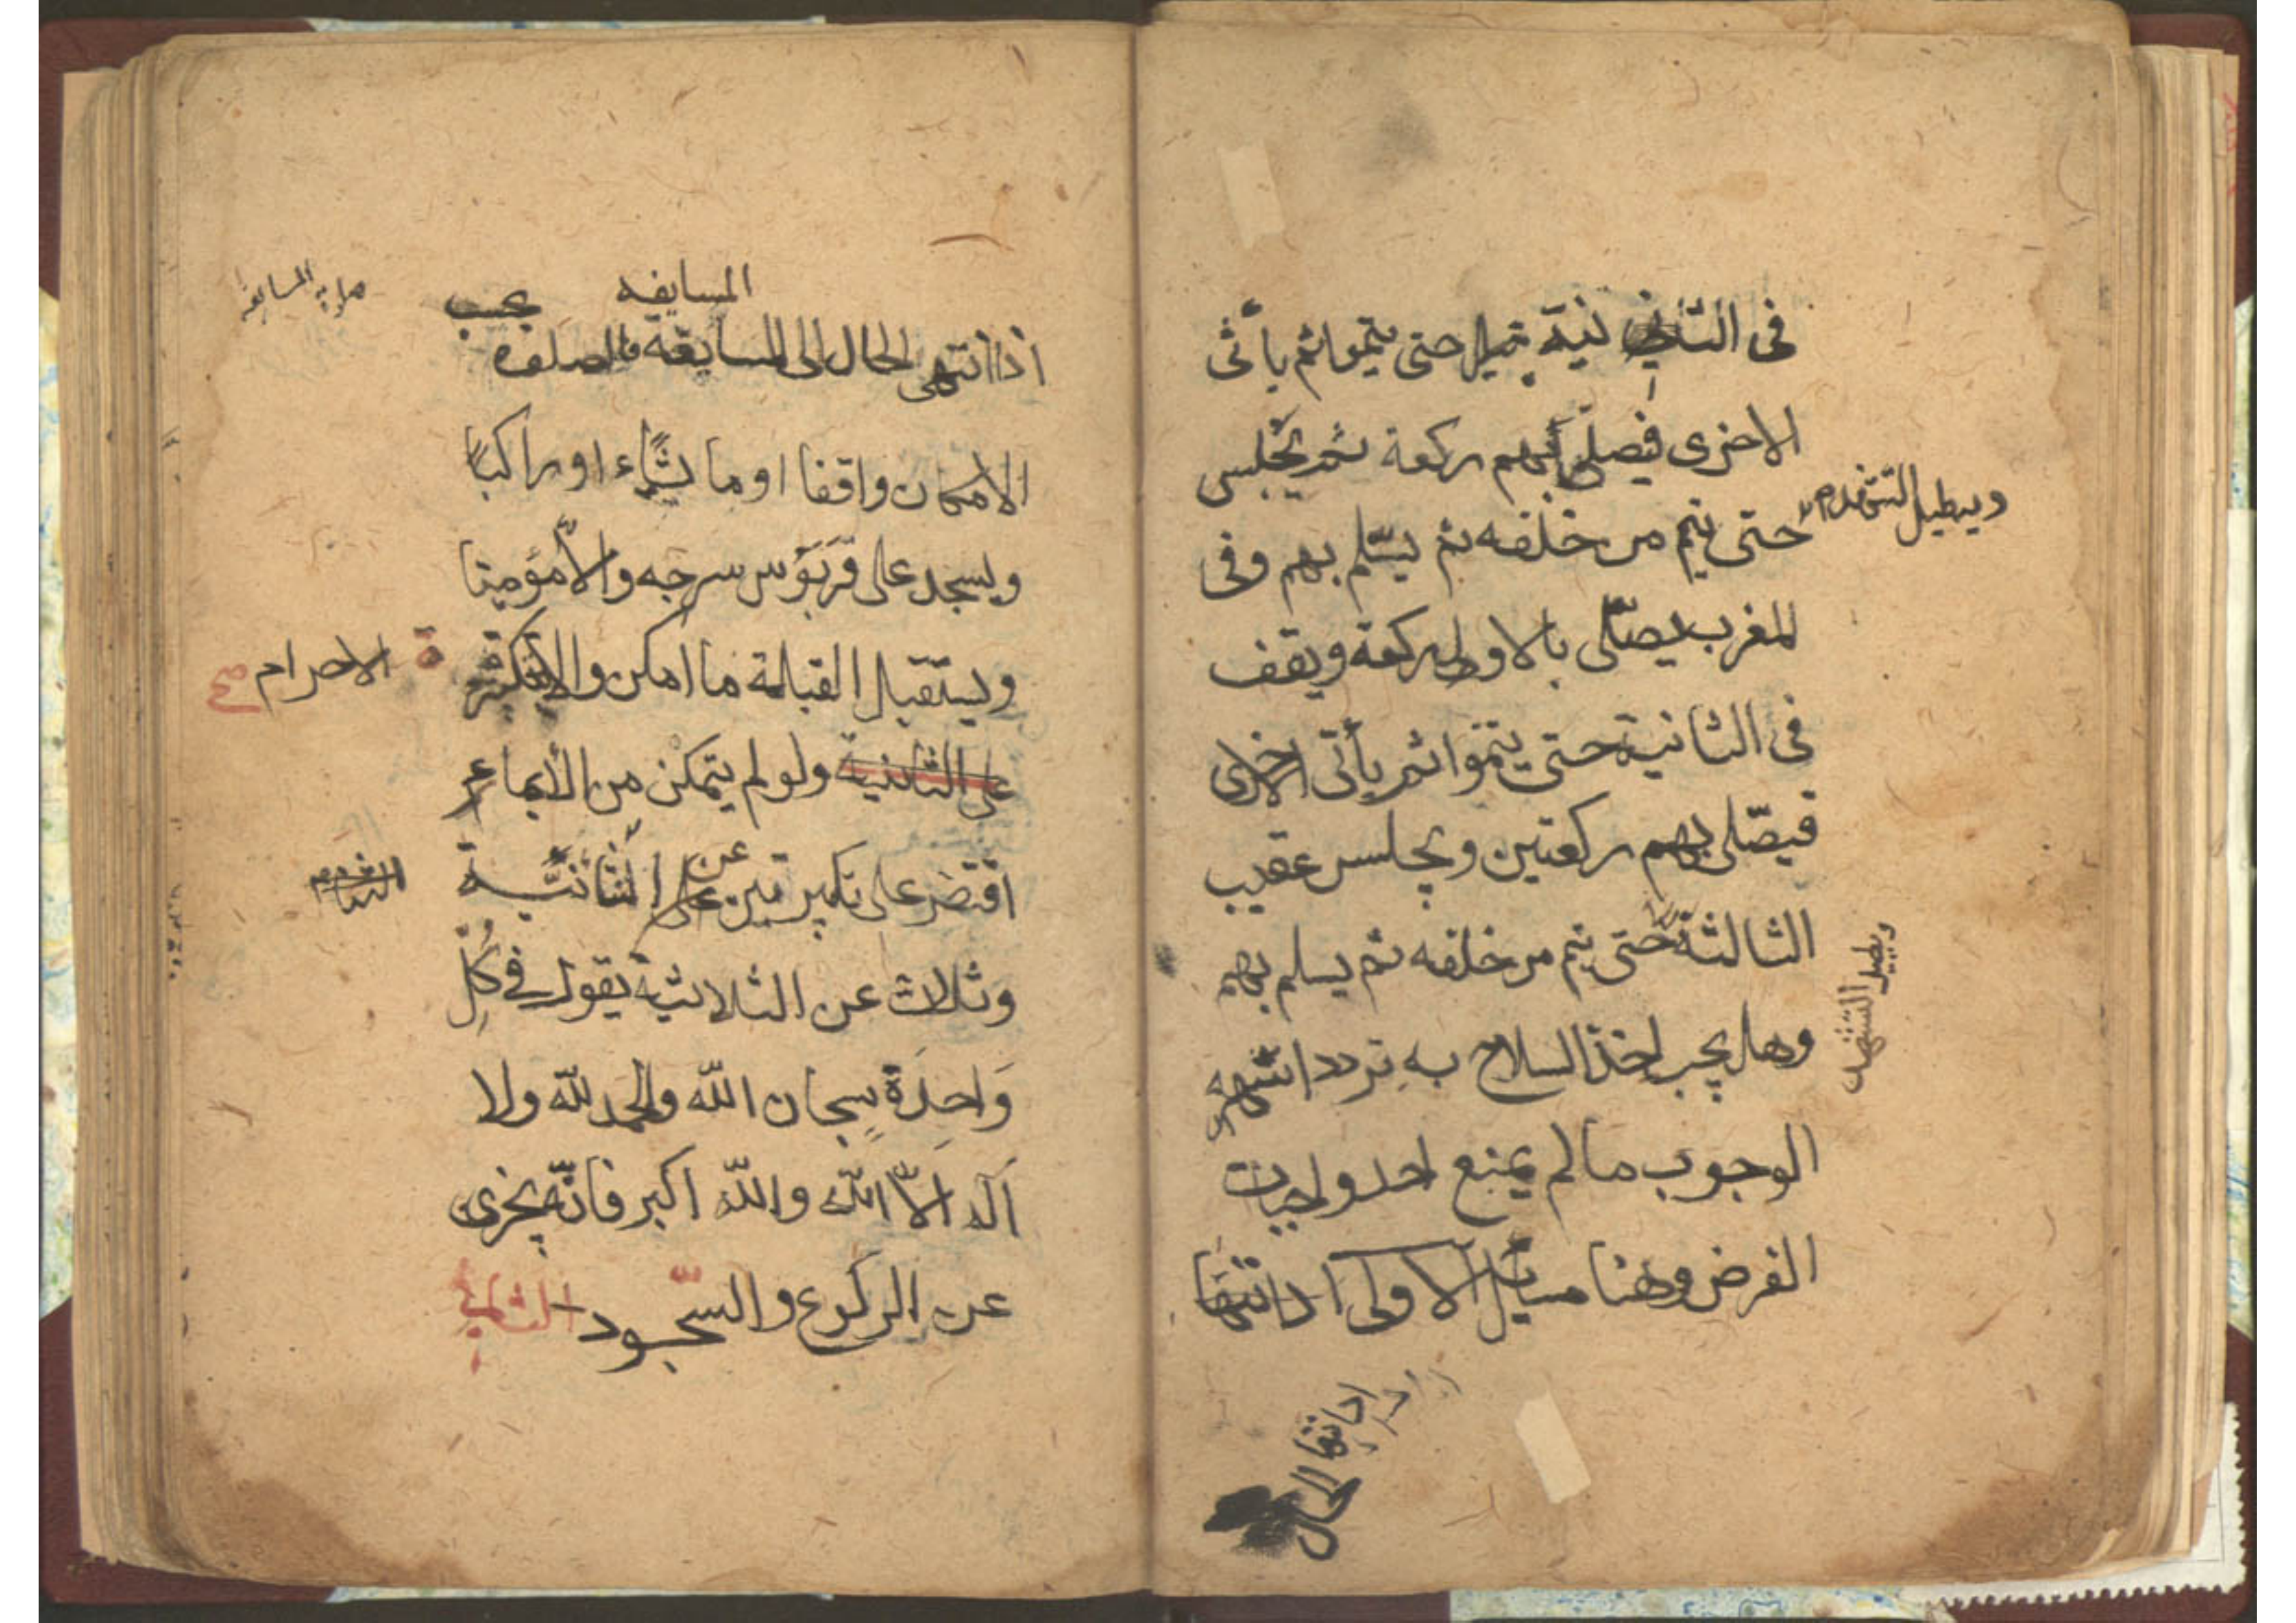 فى الثانية حتى يتموا ثم يأتى
الاخرى فيصلى بهم ركعة ثم يجلس
ويطيل التشهد
حتى يتم من خلفه ثم يسّلم بهم وفى
المغرب يصلّى بالاولى ركعة ويقف
فى الثانية حتى يتموا ثم يأتى الاخرى
فيصّلى بهم ركعتين ويجلس عقيب
الثالثة حتى يتم من خلفه ثم يسلم بهم
ويطيل التشهد
وهل يجب اخذ السلاح به تردد اشبهه
الوجوب ما لم يمنع احد واجبات
الفرض وهنا مسايل الاولى اذا انتها
اذا انتها الحال
المسايفه يجب
اذا انتهى الحال الى المسايفة فالصلوة
الامكان واقفا او ماشياء او راكبًا
ويسجد على قَرَبَوُس سرجه والاّ مؤميا
ويستقبل القبلة ما امكن والا بتكبيرة
الاحرام صح
على الثانية ولو لم يتمكن من الأيماء
اقتصر على تكبيرتين على عن الثنائيّة
وثلاث عن الثلاثية يقول فى كُلّ
وَاحِدَة سبحان اللّه والحمد للّه ولا
اله الاّ اللّه واللّه اكبر فانّه يجزى
عن الركوع والسّجود الثانية